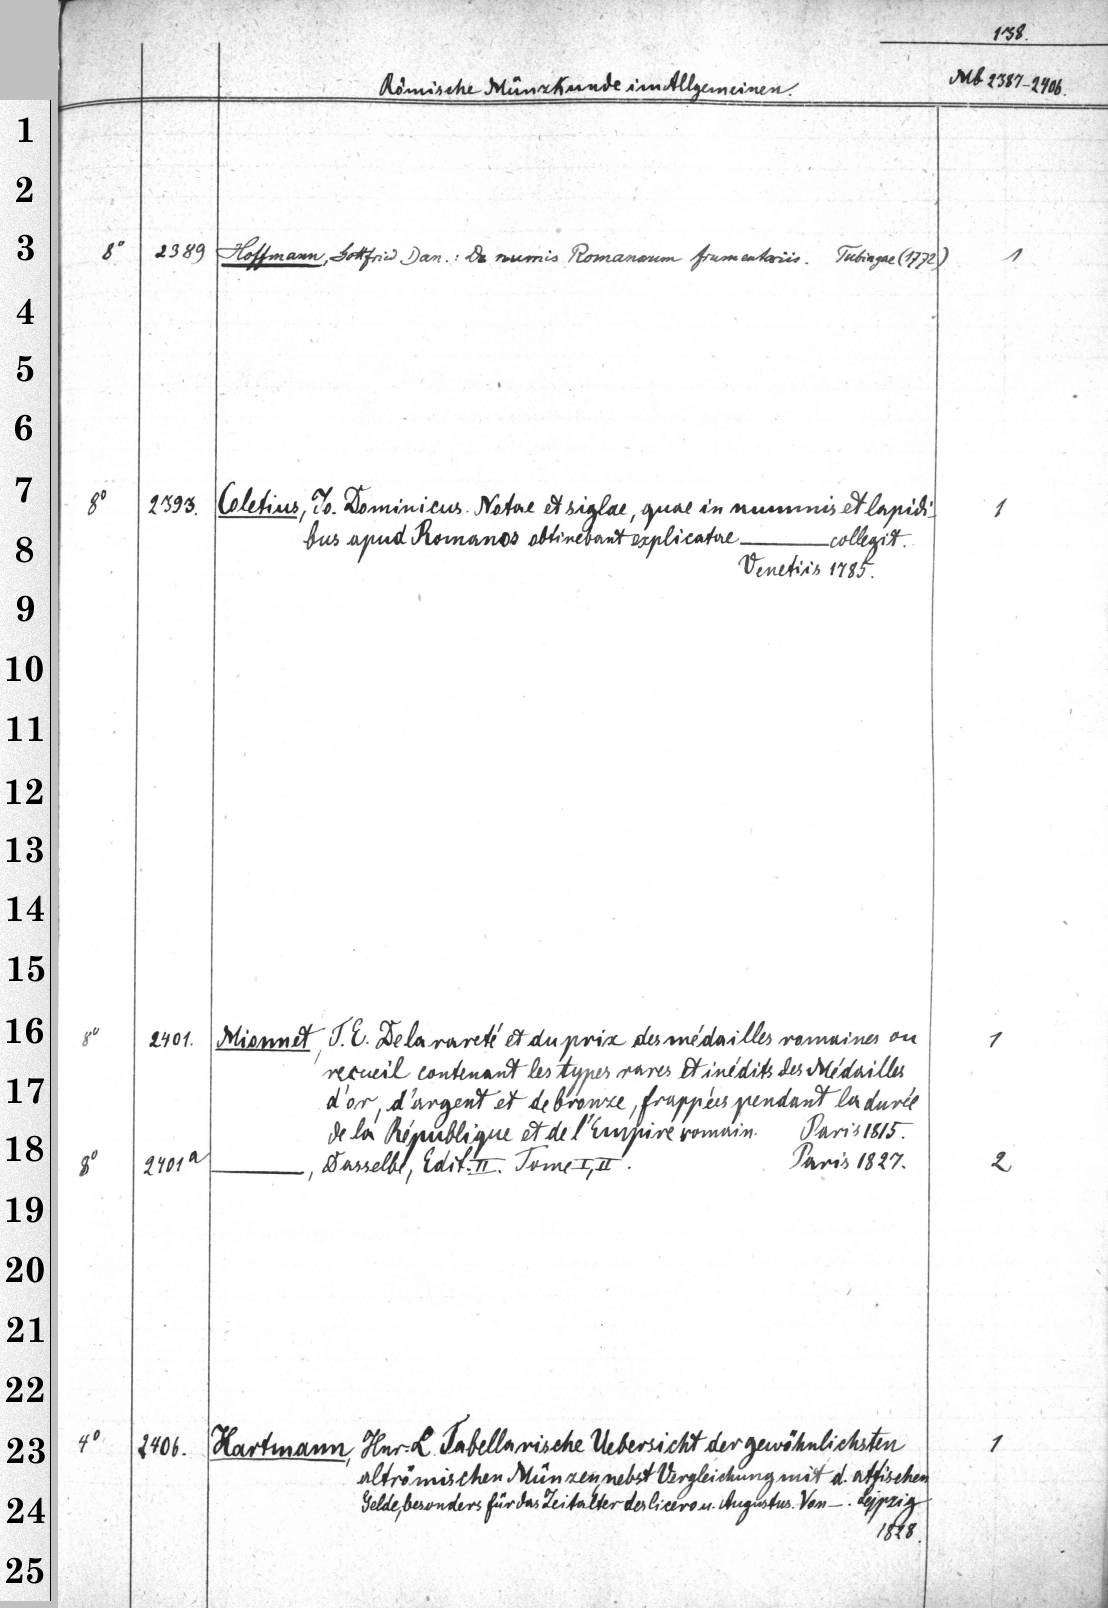 138.
Römische Münzkunde im Allgemeinen.
Mb 2387-2406.
1
2
3
8° 2389 Hoffmann, Gottfried Dan.: De numis Romanorum frumentariis. Tubingae (1772) 1
4
5
6
7
8° 2393. Coletius, Jo. Dominicus. Notae et siglae, quae in nummis et lapidi- 1
8
bus apud Romanos obtinebant explicatae ——— collegit.
Venetiis 1785.
9
10
11
12
13
14
15
16
8° 2401. Mionnet, T. E. De la rareté et du prix des médailles romaines ou 1
recueil contenant les types rares et inédits des Médailles
17
d'or, d'argent et de bronze, frappées pendant la durée
de la République et de l'Empire romain. Paris 1815.
18
8° 2401a ———, Dasselbe, Edit. II. Tome I, II. Paris 1827. 2
19
20
21
22
23
4° 2406. Hartmann, Hnr. L. Tabellarische Uebersicht der gewöhnlichsten 1
altrömischen Münzen, nebst Vergleichung mit d. attischen
24
Gelde, besonders für das Zeitalter des Cicero u. Augustus. Von —. Leipzig
1828.
25